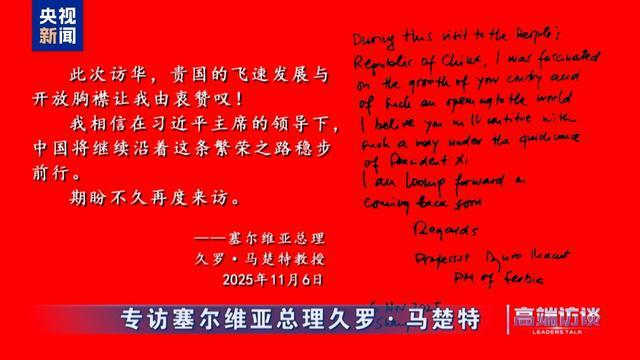 央视
新闻
此次访华，贵国的飞速发展与
开放胸襟让我由衷赞叹！
我相信在习近平主席的领导下，
中国将继续沿着这条繁荣之路稳步
前行。
期盼不久再度来访。
——塞尔维亚总理
久罗·马楚特教授
2025年11月6日
During this visit to the People's
Republic of China, I was fascinated
on the growth of your country and
of such an opening to the world
I belive you will continue with
such a way under the guidance
of President Xi
I am looking forward
coming back soon
Regards
Professor Djuro Macut
PM of Serbia
6 Nov 2025
专访塞尔维亚总理久罗·马楚特
高端访谈
LEADERS TALK